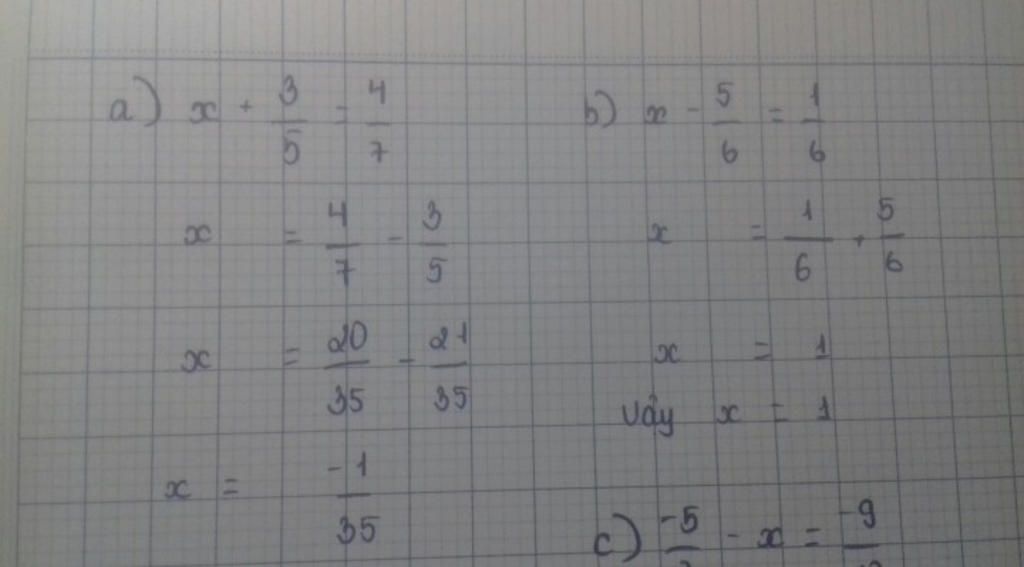 a) x + 3/5 = 4/7
x = 4/7 - 3/5
x = 20/35 - 21/35
x = -1/35
b) x - 5/6 = 1/6
x = 1/6 + 5/6
x = 1
Vậy x = 1
c) -5/ - x = -9/